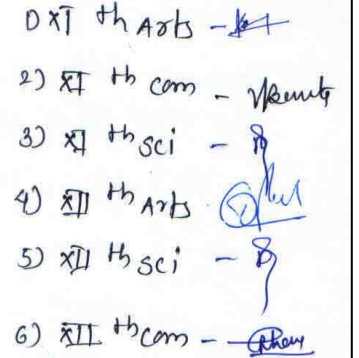 1) XI th Arts -
2) XI th com -
3) XI th sci -
4) XII th Arts
5) XII th sci -
6) XII th com -